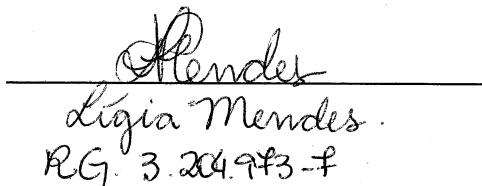 Mendes
Lígia Mendes.
RG. 3.204.973-7